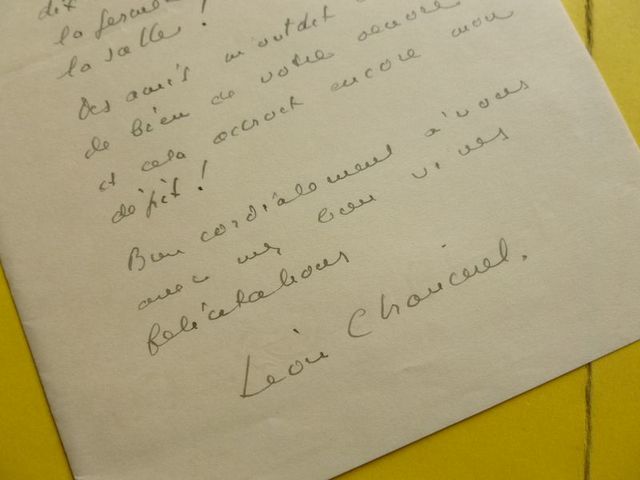 dix
la ferme
la salle !
Des amis m'ont dit
de bien de votre oeuvre
et cela accroit encore mon
dépit !
Bien cordialement à vous
avec mes bien vives
félicitations
Léon Chancerel.